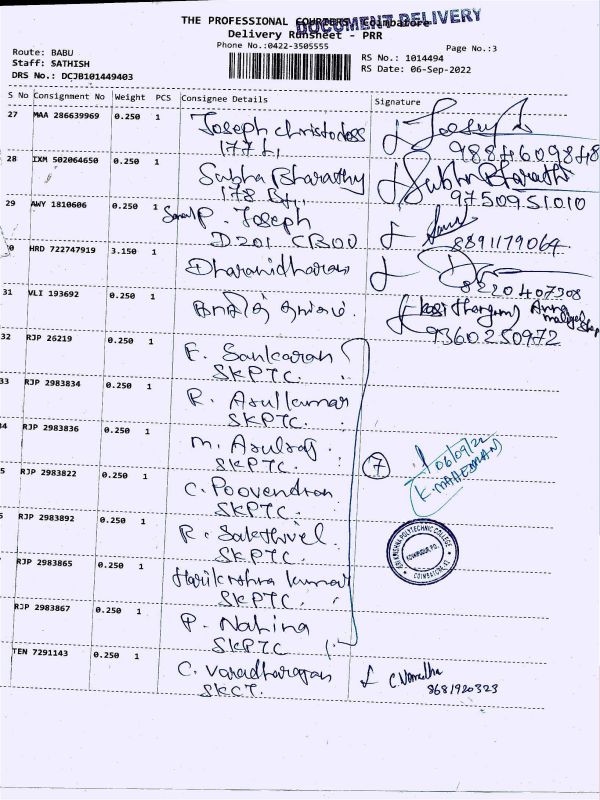 THE PROFESSIONAL COURIERS, Coimbatore
DOCUMENT DELIVERY
Delivery Runsheet - PRR
Route: BABU
Phone No.:0422-3505555
Page No.:3
Staff: SATHISH
RS No.: 1014494
DRS No.: DCJB101449403
RS Date: 06-Sep-2022
S No Consignment No Weight PCS Consignee Details Signature
27 MAA 286639969 0.250 1 Joseph Christodoss
177
9884609848
28 IXM 502064650 0.250 1 Subha Bharathy Subha Bharathi
178
9750951010
29 AWY 1810606 0.250 1 P. Joseph
D201
8891179064
HRD 722747919 3.150 1 Dharanidharan
8220407308
31 VLI 193692 0.250 1
9360250972
32 RJP 26219 0.250 1 F. Sankaran
SKPTC.
33 RJP 2983834 0.250 1 R. Asulkumar
SKPTC.
RJP 2983836 0.250 1 M. Asulraj
SKPTC.
7
06/09/22
K. MAHENDRAN
RJP 2983822 0.250 1 C. Poovendran
SKPTC.
RJP 2983892 0.250 1 R. Sakthivel
SKPTC.
SRI KRISHNA POLYTECHNIC COLLEGE
KOVAIPUDUR, PO.
COIMBATORE-42
RJP 2983865 0.250 1 Harikrishna kumar
SKPTC.
RJP 2983867 0.250 1 P. Nahina
SKPTC
TEN 7291143 0.250 1 C. Varadharajan
SKCT.
8681920323